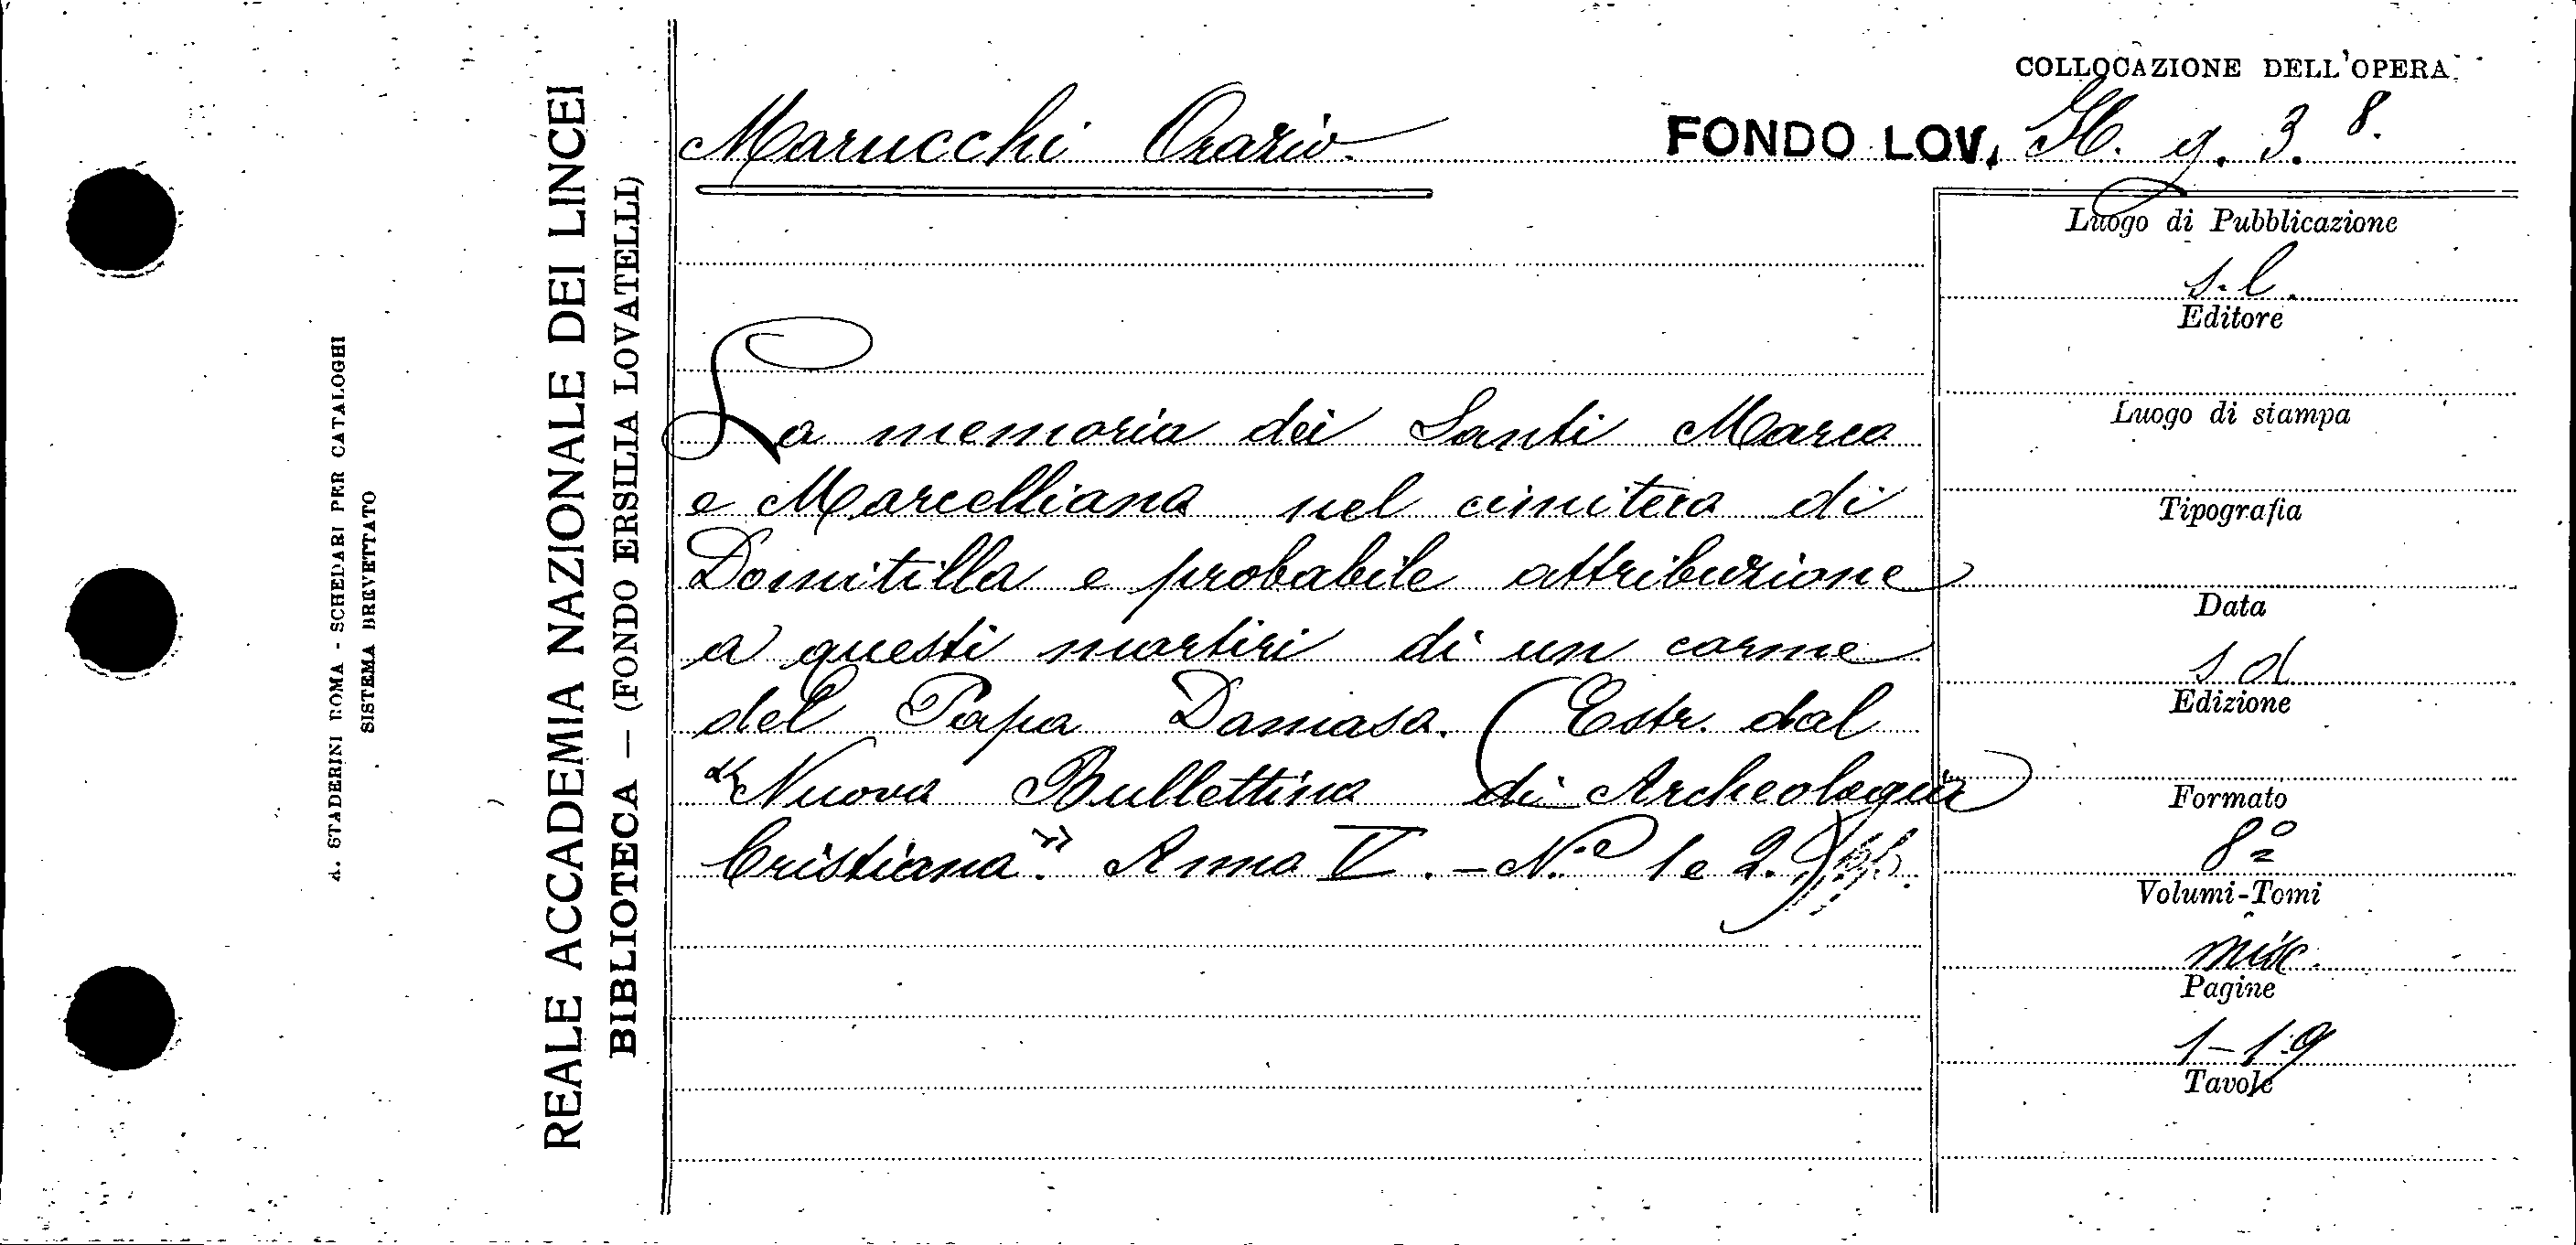 COLLOCAZIONE DELL'OPERA
Marucchi Orazio
FONDO LOV. H. g. 3. 8.
La memoria dei Santi Marco
e Marcelliano nel cimitero di
Domitilla e probabile attribuzione
a questi martiri di un carme
del Papa Damaso. (Estr. dal
"Nuovo Bullettino di Archeologia
Cristiana". Anno V. - N.° 1 e 2.)
Luogo di Pubblicazione
s. l.
Editore
Luogo di stampa
Tipografia
Data
s d
Edizione
Formato
8°
Volumi-Tomi
misc.
Pagine
1-19
Tavole
REALE ACCADEMIA NAZIONALE DEI LINCEI
BIBLIOTECA — (FONDO ERSILIA LOVATELLI)
A. STADERINI ROMA - SCHEDARI PER CATALOGHI
SISTEMA BREVETTATO